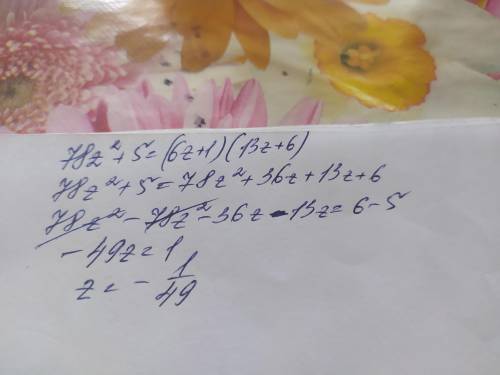 78z²+5=(6z+1)(13z+6)
78z²+5=78z²+36z+13z+6
78z²-78z²-36z-13z=6-5
-49z=1
z=-1/49